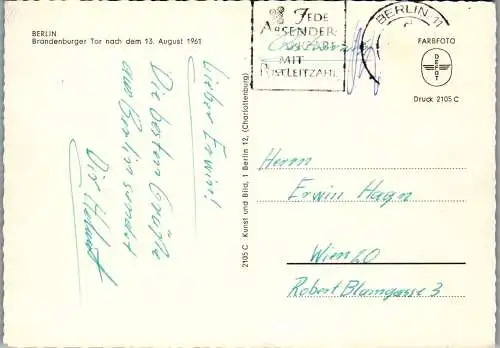 BERLIN
Brandenburger Tor nach dem 13. August 1961
JEDE
ABSENDER
MIT
POSTLEITZAHL
BERLIN 11
FARBFOTO
DEFOT
Druck 2105 C
Lieber Erwin!
Die besten Grüße
aus Berlin sendet
Dir Helmut
2105 C Kunst und Bild, 1 Berlin 12, (Charlottenburg)
Herrn
Erwin Hagn
Wien 20
Robert Blumgasse 3